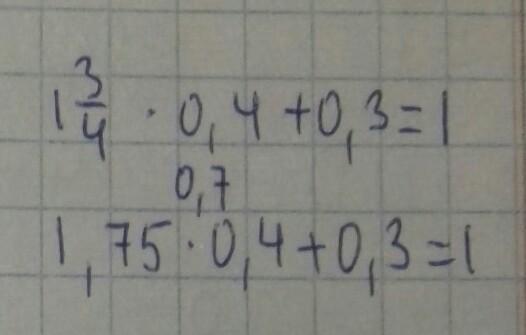 1 3/4 · 0,4 + 0,3 = 1
0,7
1,75 · 0,4 + 0,3 = 1